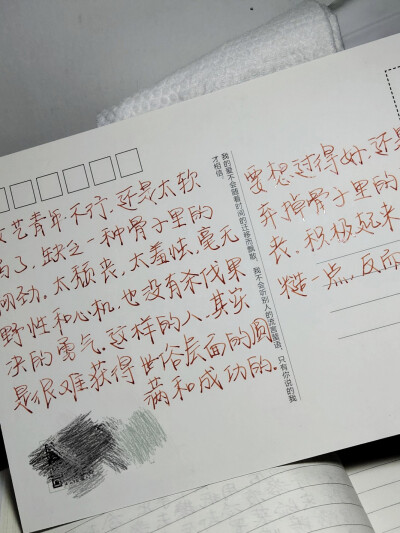 文艺青年不行,还是太软
弱了,缺乏一种骨子里的
刚劲。太颓丧,太羞怯,毫无
野性和心机,也没有杀伐果
决的勇气。这样的人,其实
是很难获得世俗层面的圆
满和成功的.
我的爱不会随着时间的迁移而飘散,我不会听别人的流言蜚语,只有你说的我
才相信。
要想过得好,还是
弃掉骨子里的
丧,积极起来
糙一点,反而